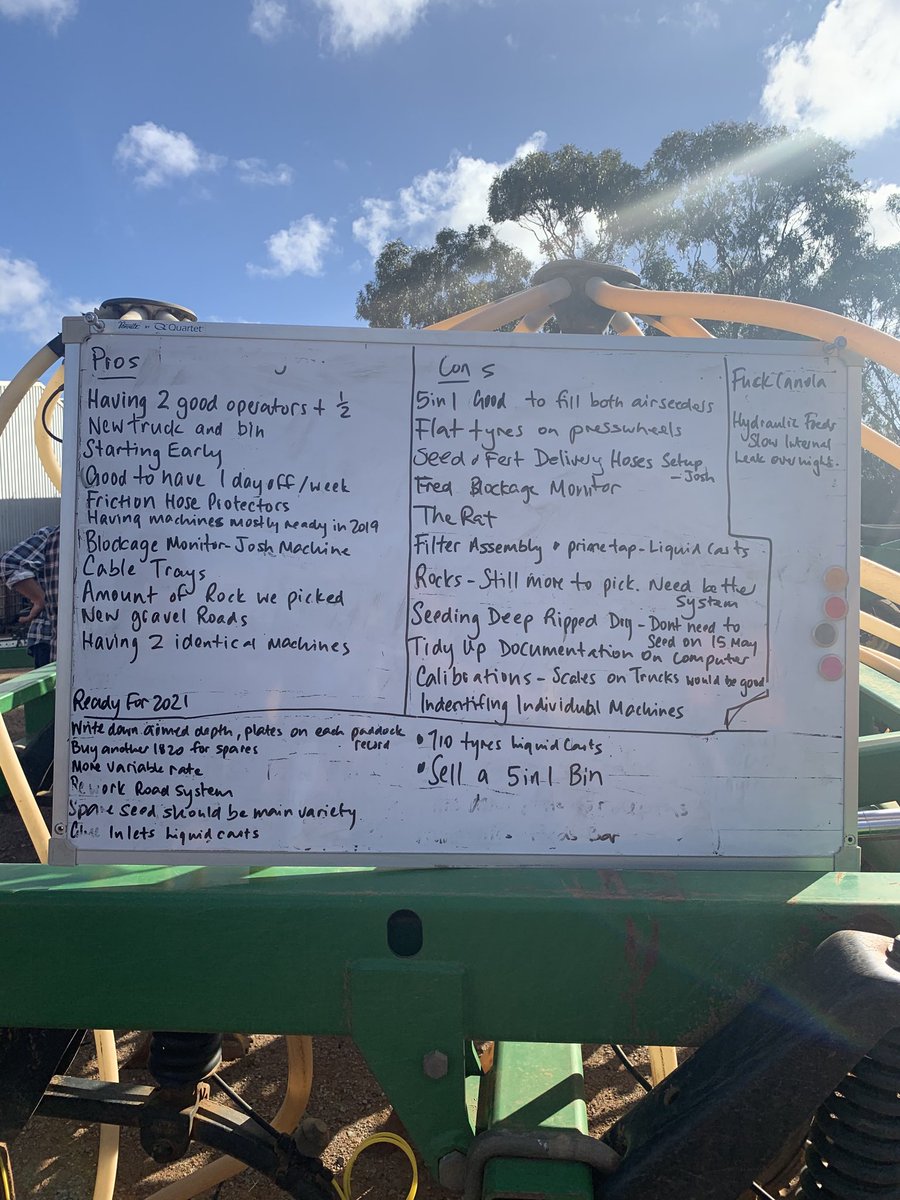 Quartet
Pros
Having 2 good operators + 1/2
New truck and bin
Starting Early
Good to have 1 day off/week
Friction Hose Protectors
Having machines mostly ready in 2019
Blockage Monitor - Josh Machine
Cable Trays
Amount of Rock we picked
New gravel Roads
Having 2 identical machines
Cons
5in1 Good to fill both airseeders
Flat tyres on presswheels
Seed & Fert Delivery Hoses Setup
- Josh
Fred Blockage Monitor
The Rat
Filter Assembly & primetap - Liquid Carts
Rocks - Still more to pick. Need better
System
Seeding Deep Ripped Dry - Dont need to
Seed on 15 May
Tidy Up Documentation on Computer
Calibrations - Scales on Trucks would be good
Indentifing Individual Machines
Fuck Canola
Hydraulic Feeds
Slow Internal
Leak overnight.
Ready For 2021
Write down aimed depth, plates on each paddock
record
Buy another 1820 for spares
More variable rate
Rework Road System
Spare seed should be main variety
Inlets Liquid carts
• 710 tyres Liquid Carts
• Sell a 5in1 Bin
Bar